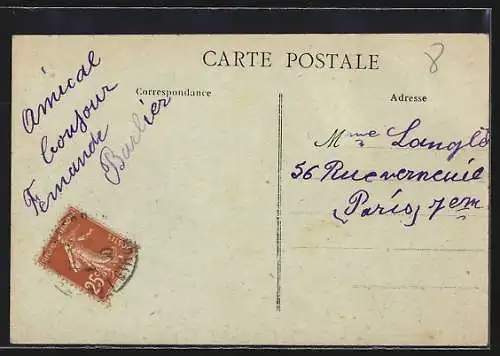 CARTE POSTALE
8
Correspondance
Adresse
Amical
bonjour
Fernande
Barlier
Mme Langlé
56 Rue verneuil
Paris 7em
25